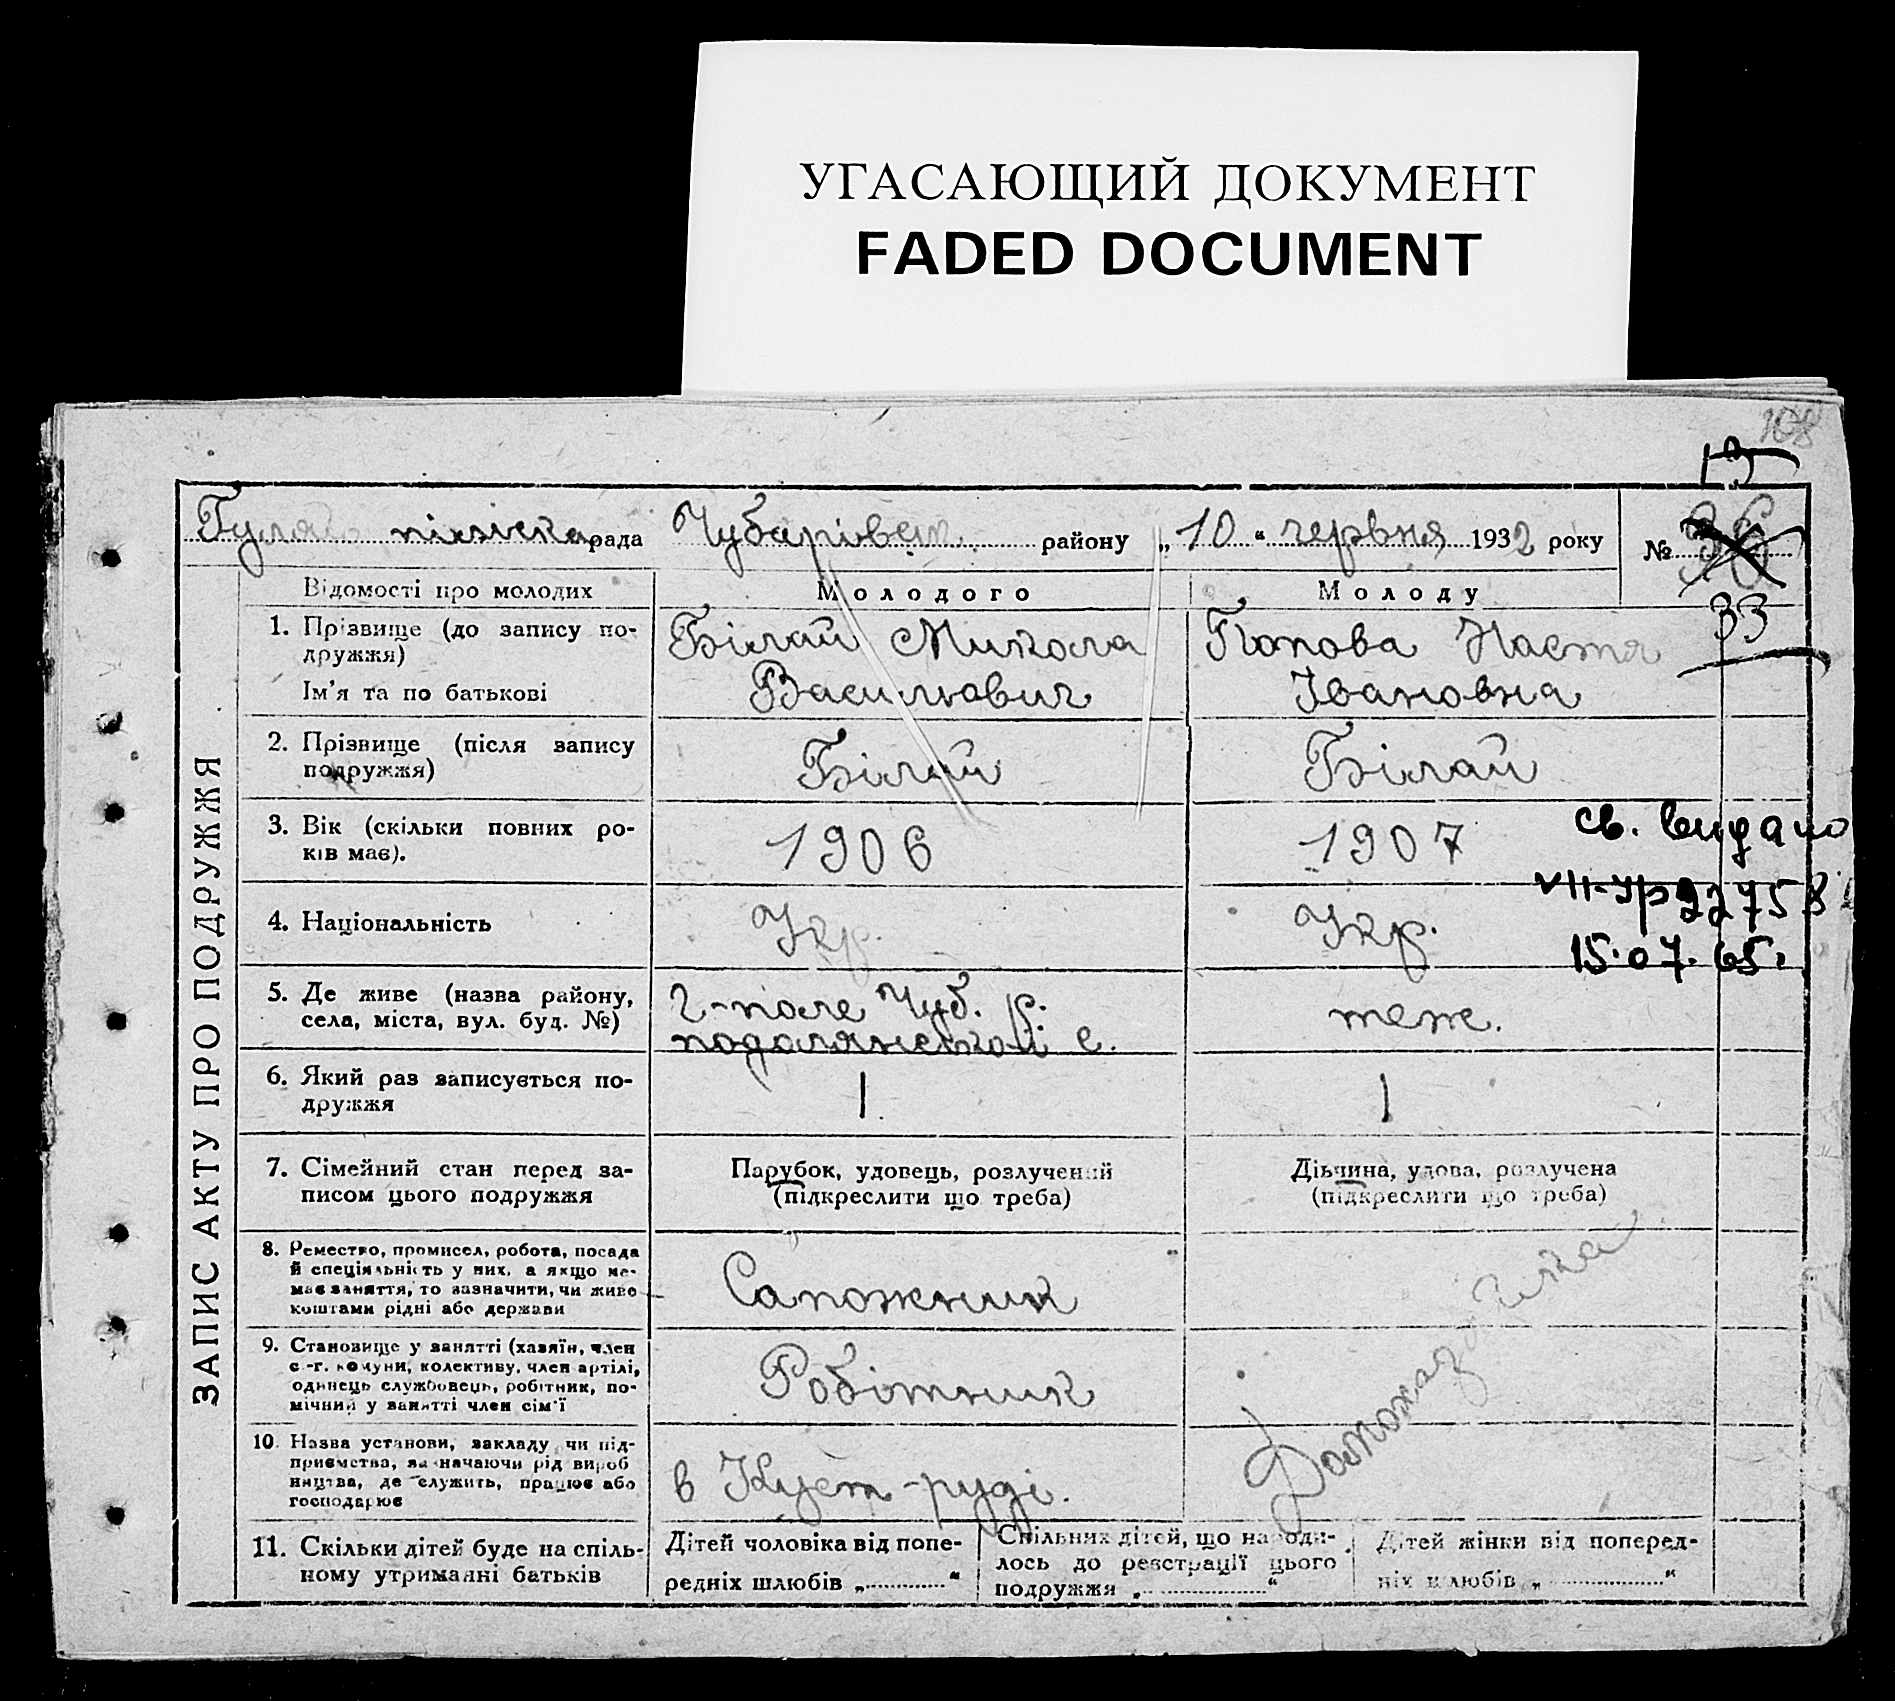 УГАСАЮЩИЙ ДОКУМЕНТ
FADED DOCUMENT
108
13
Гуляй пільська рада Чубарівськ. району „10“ червня 1932 року № 36
33
ЗАПИС АКТУ ПРО ПОДРУЖЖЯ
Відомості про молодих Молодого Молоду
1. Прізвище (до запису по- Білай Микола Попова Настя
дружжя)
Ім'я та по батькові Васильович Івановна
2. Прізвище (після запису Білай Білай
подружжя)
3. Вік (скільки повних ро- 1906 1907
ків має).
св. видано
VII-УР 227583
15.07.65г
4. Національність Укр. Укр.
5. Де живе (назва району, Г-поле Чуб. р. теж.
села, міста, вул. буд. №) подолянської с.
6. Який раз записується по- 1 1
дружжя
7. Сімейний стан перед за- Парубок, удовець, розлучений Дівчина, удова, розлучена
писом цього подружжя (підкреслити що треба) (підкреслити що треба)
8. Ремество, промисел, робота, посада
й спеціяльність у них, а якщо не-
має заняття, то зазначити, чи живе
коштами рідні або держави
Сапожник
9. Становище у занятті (хазяїн, член
с-г. комуни, колективу, член артілі,
одинець службовець, робітник, по-
мічний у занятті член сім'ї
Робітник
Домохазяйка
10. Назва установи, закладу чи під-
приємства, зазначаючи рід вироб
ництва, де служить, працює або
господарює
в
11. Скільки дітей буде на спіль-
ному утриманні батьків
Дітей чоловіка від попе-
редніх шлюбів „............“
Спільних дітей, що народи-
лось до реєстрації цього
подружжя „............“
Дітей жінки від поперед-
ніх шлюбів „............“